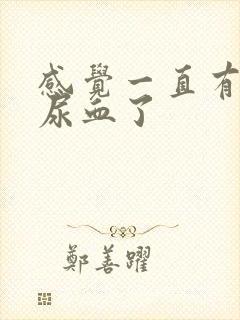 感覺一直有
尿血了
鄭善躍